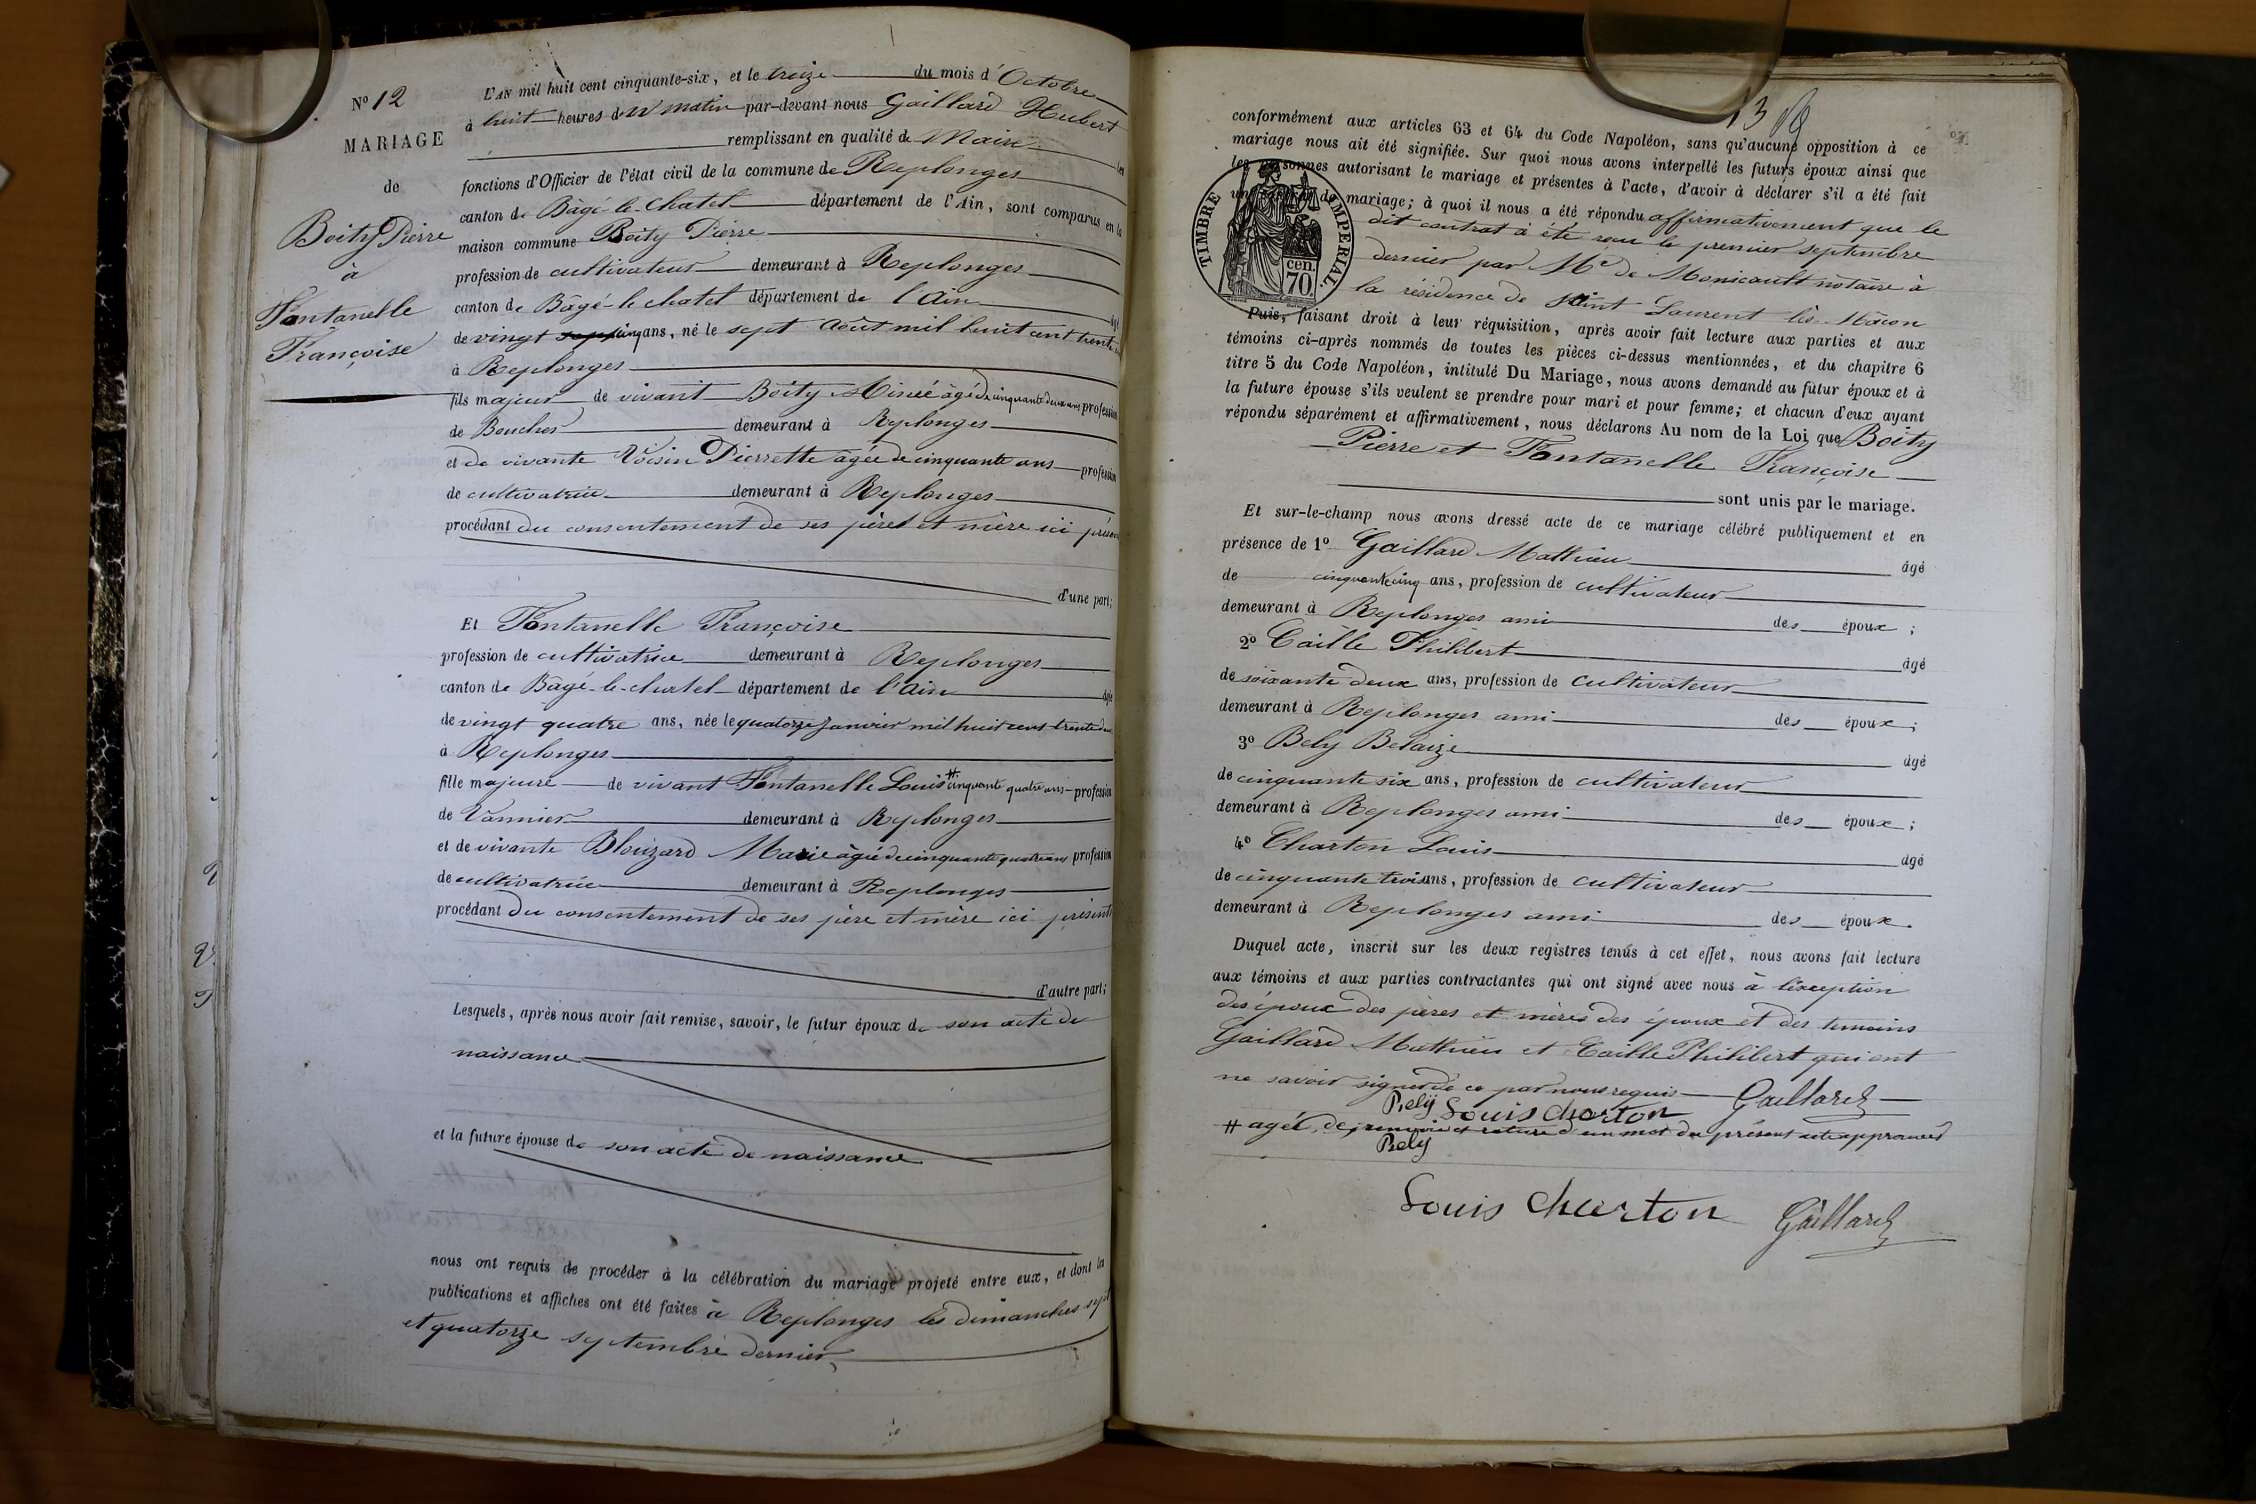 N° 12
MARIAGE
de
Boity Pierre
à
Fontanelle
Françoise
L'AN mil huit cent cinquante-six, et le treize du mois d'Octobre
à huit heures du matin par-devant nous Gaillard Hubert
remplissant en qualité de Maire les
fonctions d'Officier de l'état civil de la commune de Replonges
canton de Bâgé-le-Chatel département de l'Ain, sont comparus en la
maison commune Boity Pierre
profession de cultivateur demeurant à Replonges
canton de Bâgé-le-chatel département de l'Ain âgé
de vingt cinq ans, né le sept Août mil huit cent trente
à Replonges
fils majeur de vivant Boity âgé de cinquante deux ans profession
de Boucher demeurant à Replonges
et de vivante Voisin Pierrette âgée de cinquante ans profession
de cultivatrice demeurant à Replonges
procédant du consentement de ses père et mère ici
d'une part;
Et Fontanelle Françoise
profession de cultivatrice demeurant à Replonges
canton de Bâgé-le-chatel département de l'Ain âgé
de vingt quatre ans, née le quatorze Janvier mil huit cent trente deux
à Replonges
fille majeure de vivant Fontanelle Louis # cinquante quatre ans profession
de Vannier demeurant à Replonges
et de vivante Blouzard Marie âgée de cinquante quatre ans profession
de cultivatrice demeurant à Replonges
procédant du consentement de ses père et mère ici présents
d'autre part;
Lesquels, après nous avoir fait remise, savoir, le futur époux de son acte de
naissance
et la future épouse de son acte de naissance
nous ont requis de procéder à la célébration du mariage projeté entre eux, et dont les
publications et affiches ont été faites à Replonges les dimanches sept
et quatorze septembre dernier,
13
conformément aux articles 63 et 64 du Code Napoléon, sans qu'aucune opposition à ce
mariage nous ait été signifiée. Sur quoi nous avons interpellé les futurs époux ainsi que
les personnes autorisant le mariage et présentes à l'acte, d'avoir à déclarer s'il a été fait
un de mariage; à quoi il nous a été répondu affirmativement que le
dit contrat à été reçu le premier septembre
dernier par Me de Monicault notaire à
la résidence de Saint Laurent lès Mâcon
TIMBRE IMPERIAL.
cen.
70.
Puis, faisant droit à leur réquisition, après avoir fait lecture aux parties et aux
témoins ci-après nommés de toutes les pièces ci-dessus mentionnées, et du chapitre 6
titre 5 du Code Napoléon, intitulé Du Mariage, nous avons demandé au futur époux et à
la future épouse s'ils veulent se prendre pour mari et pour femme; et chacun d'eux ayant
répondu séparément et affirmativement, nous déclarons Au nom de la Loi, que Boity
Pierre et Fontanelle Françoise
sont unis par le mariage.
Et sur-le-champ nous avons dressé acte de ce mariage célébré publiquement et en
présence de 1° Gaillard Mathieu âgé
de cinquante cinq ans, profession de cultivateur
demeurant à Replonges ami des époux ;
2° Caille Philibert âgé
de soixante deux ans, profession de cultivateur
demeurant à Replonges ami des époux ;
3° Bely Belaize âgé
de cinquante six ans, profession de cultivateur
demeurant à Replonges ami des époux ;
4° Charton Louis âgé
de cinquante trois ans, profession de cultivateur
demeurant à Replonges ami des époux.
Duquel acte, inscrit sur les deux registres tenus à cet effet, nous avons fait lecture
aux témoins et aux parties contractantes qui ont signé avec nous à l'exception
des époux des pères et mères des époux et des temoins
Gaillard Mathieu et Caille Philibert qui ont
ne savoir signer de ce par nous requis Gaillard
Bely Louis Charton
# agé de, renvoi et rature d'un mot du présent acte approuvés
Bely
Louis Charton Gaillard